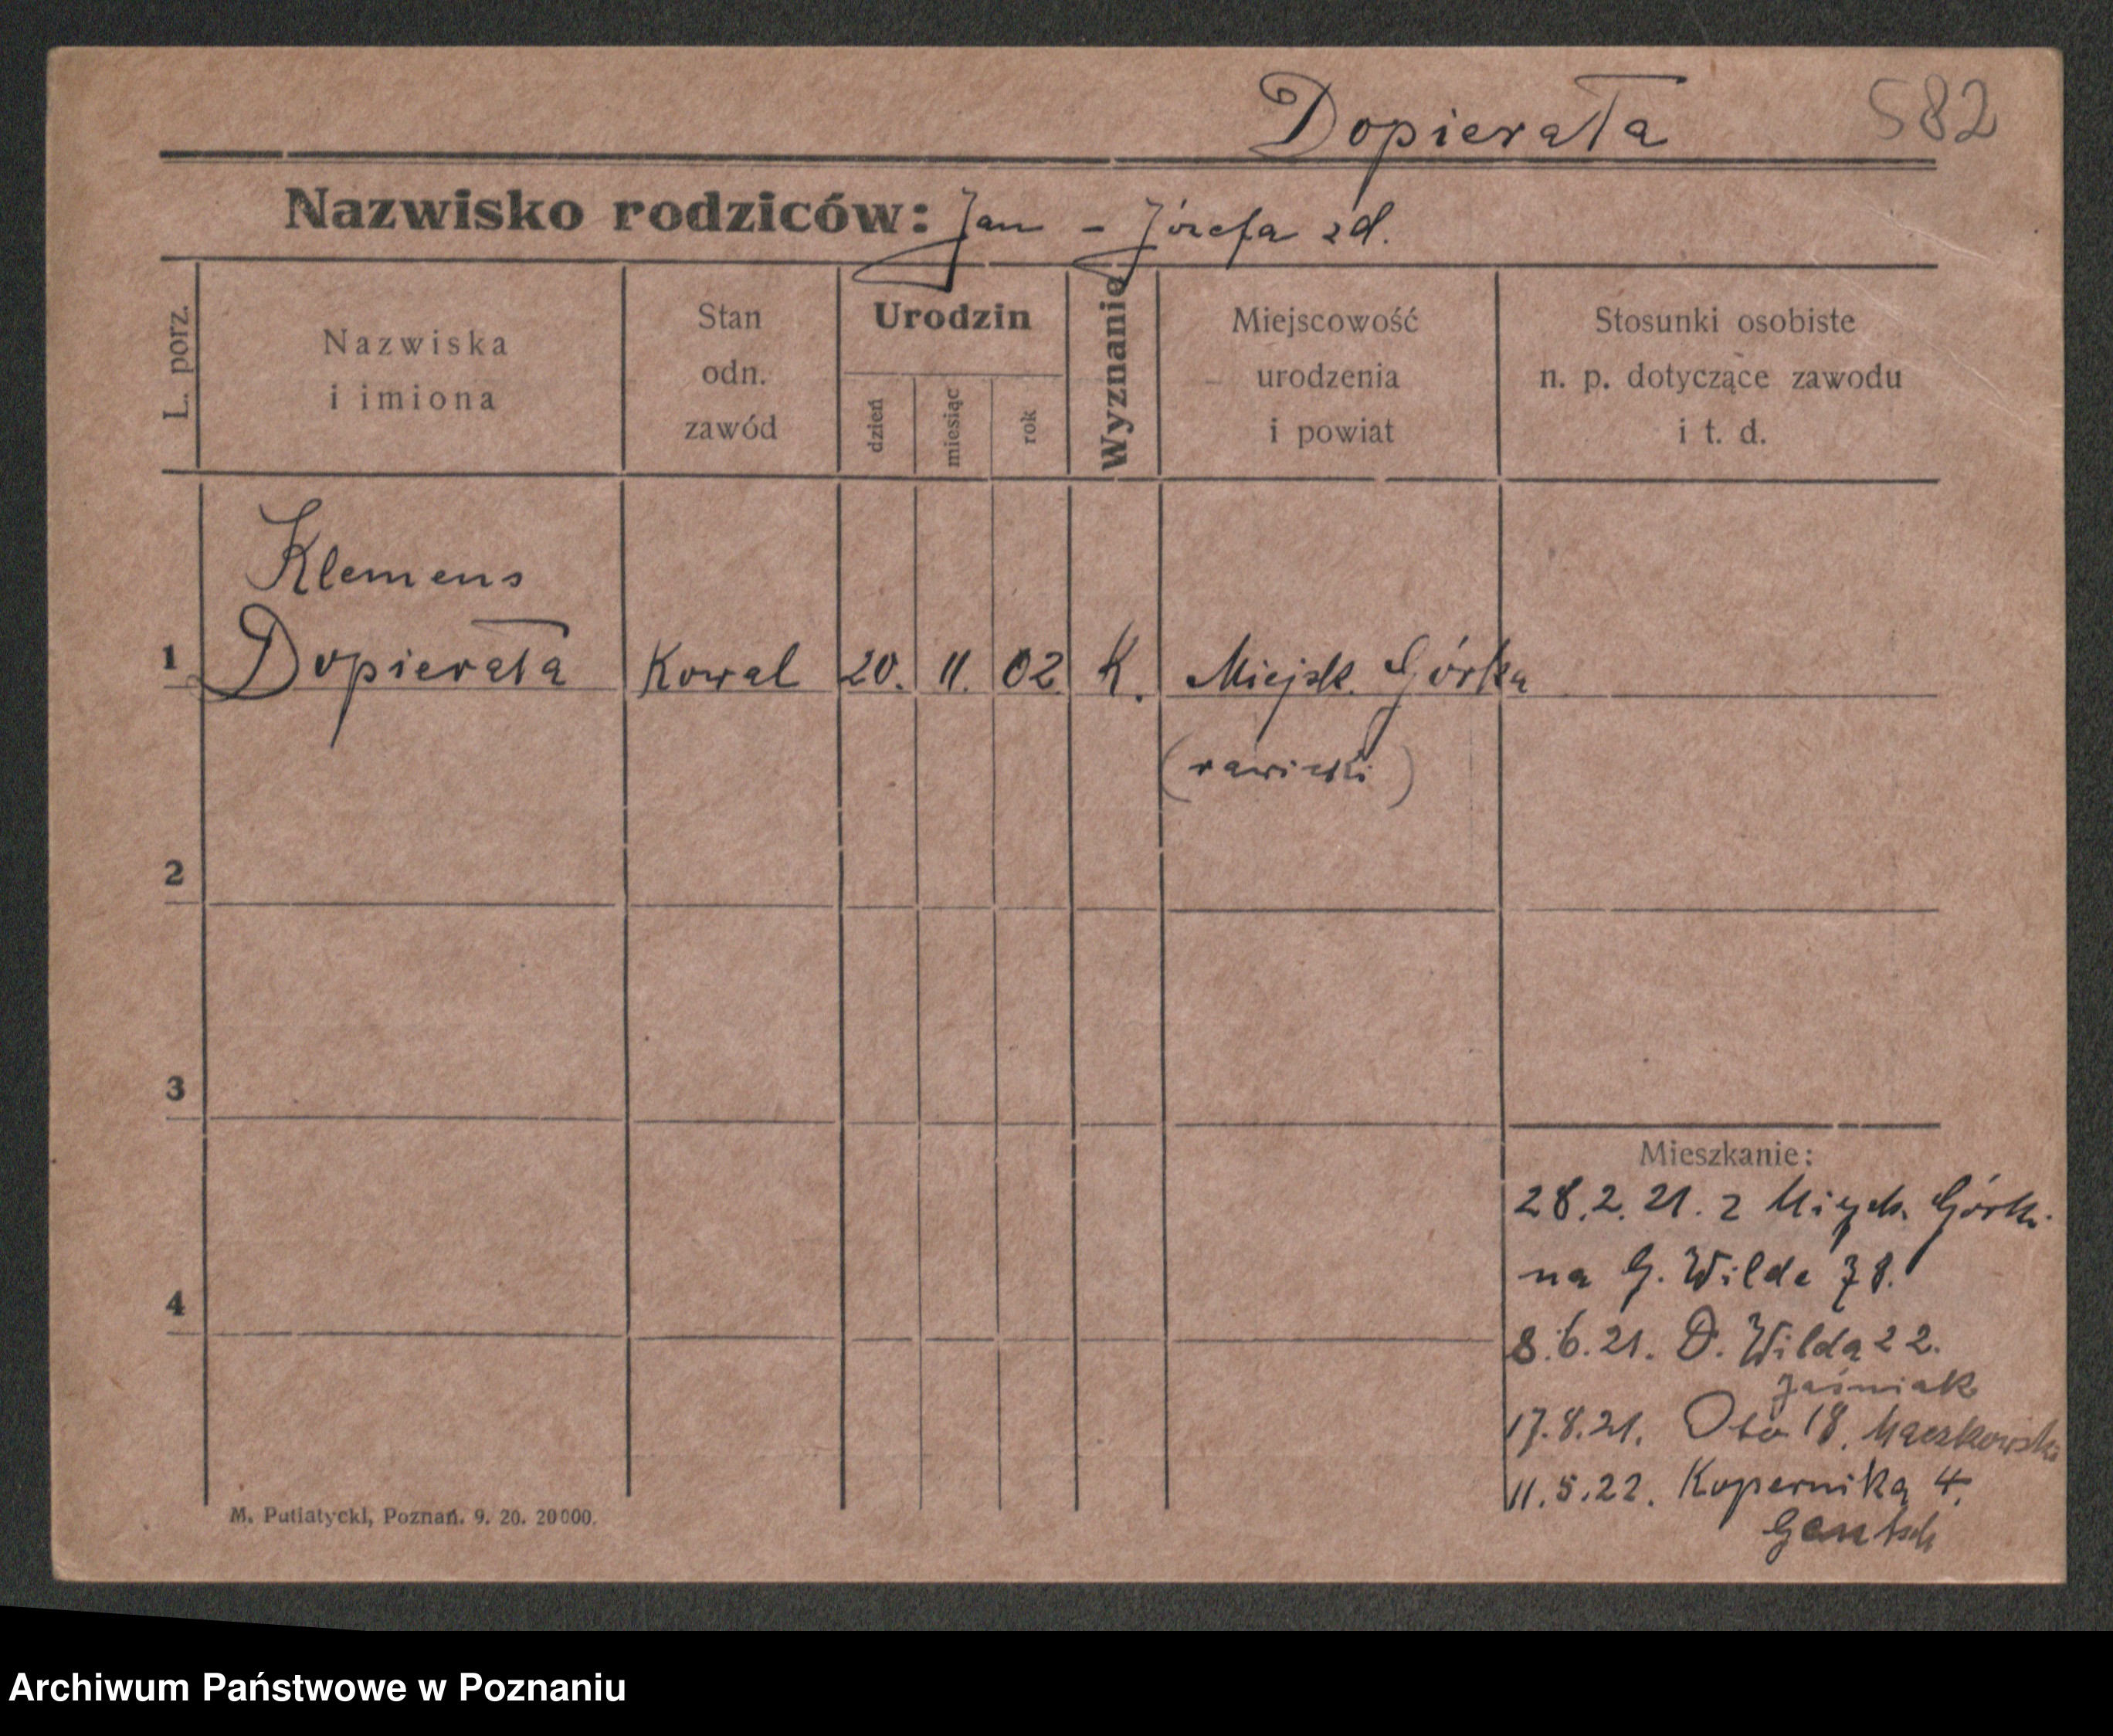 Dopierała 582
Nazwisko rodziców: Jan - Józefa zd.
L. porz.
Nazwiska
i imiona
Stan
odn.
zawód
Urodzin
dzień
miesiąc
rok
Wyznanie
Miejscowość
urodzenia
i powiat
Stosunki osobiste
n. p. dotyczące zawodu
i t. d.
Klemens
1 Dopierała Kowal 20. 11. 02 K. Miejsk. Górka
(rawicki)
2
3
Mieszkanie:
28.2.21. z Miejsk. Górk.
na G. Wilde 78.
4
8.6.21. D. Wilda 22.
Jaśniak
17.8.21. 18. Mączkowski
11.5.22. Kopernika 4.
Gentsch
M. Putiatycki, Poznań. 9. 20. 20000.
Archiwum Państwowe w Poznaniu